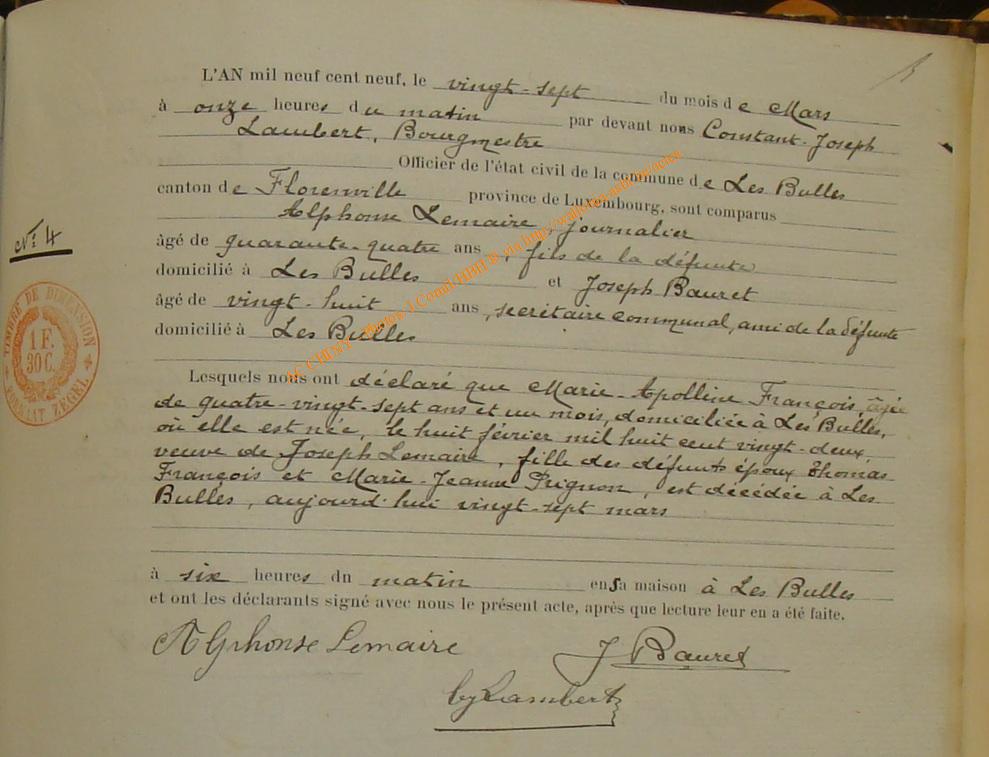 L'AN mil neuf cent neuf, le vingt-sept du mois de Mars
à onze heures du matin par devant nous Constant-Joseph
Lambert, Bourgmestre
Officier de l'état civil de la commune de Les Bulles
canton de Florenville province de Luxembourg, sont comparus
Alphonse Lemaire, journalier
âgé de quarante-quatre ans, fils de la défunte
domicilié à Les Bulles et Joseph Bauret
âgé de vingt-huit ans, secrétaire communal, ami de la défunte
domicilié à Les Bulles
Nº 4
TIMBRE DE DIMENSION
1 F.
30 C.
FORMAAT ZEGEL
Lesquels nous ont déclaré que Marie-Apolline François, âgée
de quatre-vingt-sept ans et un mois, domiciliée à Les Bulles,
où elle est née, le huit février mil huit cent vingt-deux,
veuve de Joseph Lemaire, fille des défunts époux Thomas
François et Marie-Jeanne Prignon, est décédée à Les
Bulles, aujourd'hui vingt-sept mars
à six heures du matin en sa maison à Les Bulles
et ont les déclarants signé avec nous le présent acte, après que lecture leur en a été faite.
Alphonse Lemaire J Bauret
Lambert